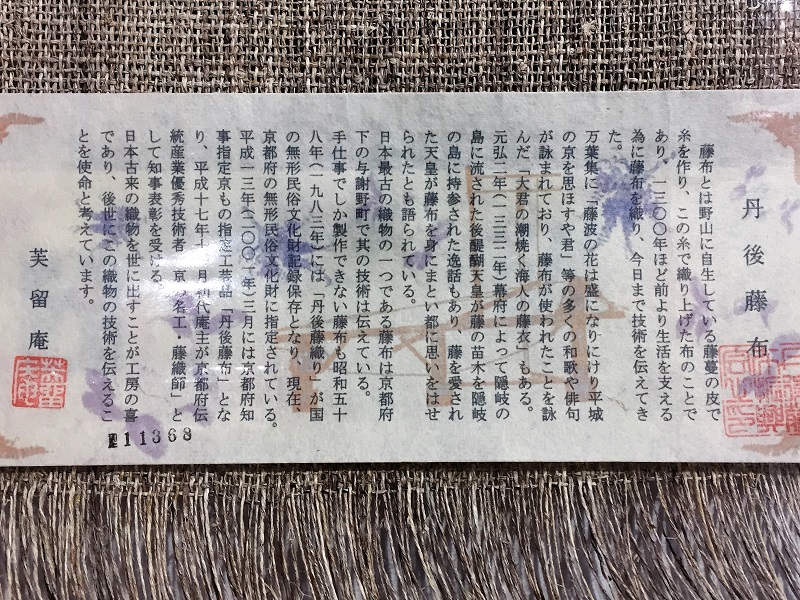 丹後藤布
藤布とは野山に自生している藤蔓の皮で
糸を作り、この糸で織り上げた布のことで
あり。一三〇〇年ほど前より生活を支える
為に藤布を織り、今日まで技術を伝えてき
た。
万葉集に「藤波の花は盛になりにけり平城
の京を思ほすや君」等の多くの和歌や俳句
が詠まれており、藤布が使われたことを詠
んだ「大君の潮焼く海人の藤衣」もある。
元弘二年(一三三二年)幕府によって隠岐の
島に流された後醍醐天皇が藤の苗木を隠岐
の島に持参された逸話もあり、藤を愛され
た天皇が藤布を身にまとい都に思いをはせ
られたとも語られている。
日本最古の織物の一つである藤布は京都府
下の与謝野町で其の技術は伝えている。
手仕事でしか製作できない藤布も昭和五十
八年(一九八三年)には「丹後藤織り」が国
の無形民俗文化財記録保存となり、現在、
京都府の無形民俗文化財に指定されている。
平成一三年(二〇〇一年)三月には京都府知
事指定京もの指定工芸品「丹後藤布」とな
り、平成十七年十月初代庵主が京都府伝
統産業優秀技術者「京の名工・藤織師」と
して知事表彰を受ける。
日本古来の織物を世に出すことが工房の喜
であり、後世にこの織物の技術を伝えるこ
とを使命と考えています。
芙留庵
11368